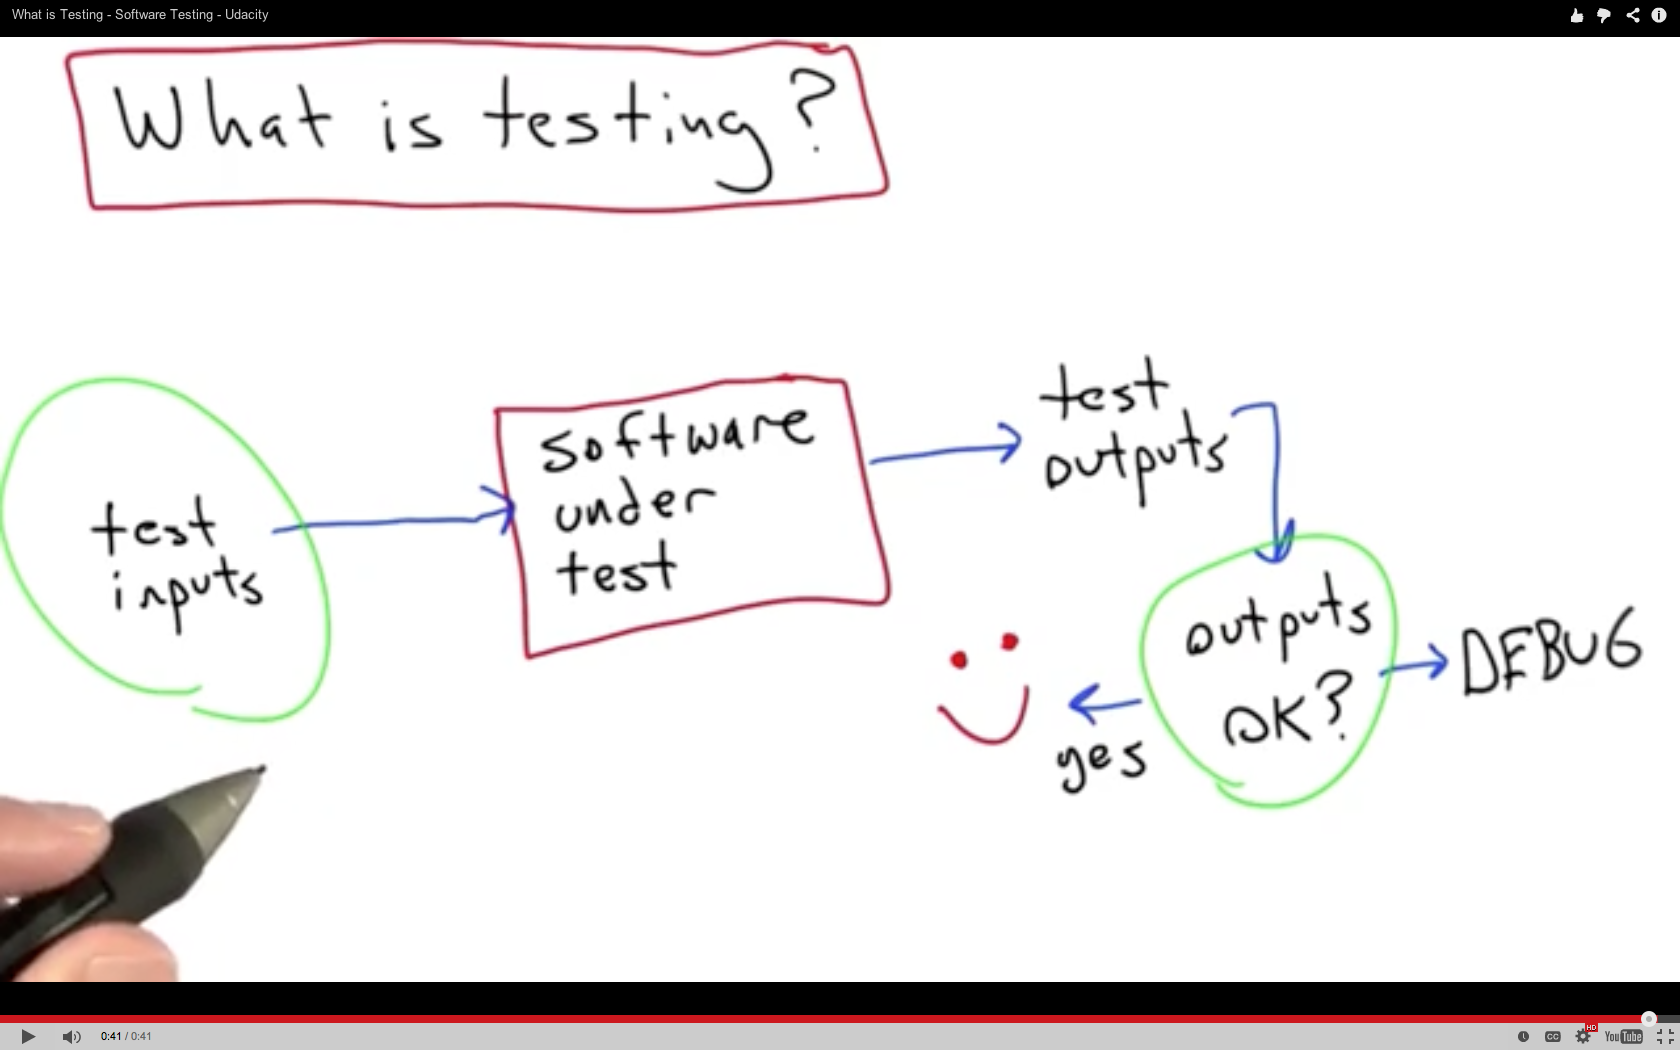 What is Testing - Software Testing - Udacity
What is testing?
test
inputs
software
under
test
test
outputs
outputs
OK?
yes
DEBUG
0:41 / 0:41
CC
HD
YouTube